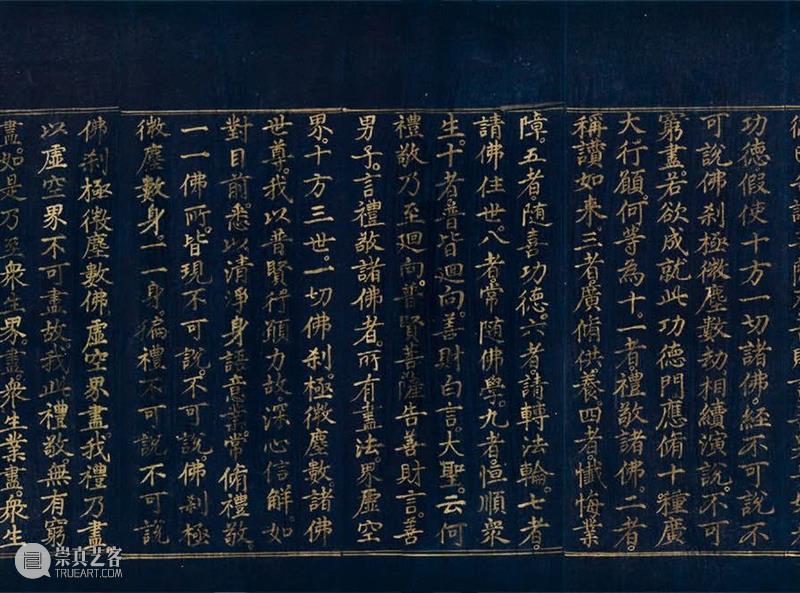 功德假使十方一切諸佛。經不可說不
可說佛剎極微塵數劫相續演說。不可
窮盡。若欲成就此功德門應脩十種廣
大行願。何等為十。一者禮敬諸佛二者。
稱讚如來。三者廣脩供養。四者懺悔業
障。五者。隨喜功德。六者。請轉法輪。七者。
請佛住世。八者常隨佛學。九者恒順眾
生。十者普皆迴向。善財白言大聖。云何
禮敬乃至迴向。普賢菩薩告善財言。善
男子。言禮敬諸佛者。所有盡法界虛空
界。十方三世。一切佛剎極微塵數。諸佛
世尊。我以普賢行願力故。深心信解如
對目前。悉以清淨身語意業。常脩禮敬。
一一佛所。皆現不可說。不可說佛剎極
微塵數身。一一身。徧禮不可說不可說
佛剎極微塵數佛虛空界盡。我禮乃盡
以虛空界不可盡故。我此禮敬無有窮
盡。如是乃至眾生界。盡眾生業盡。眾生
崇真艺客
TRUEART.COM